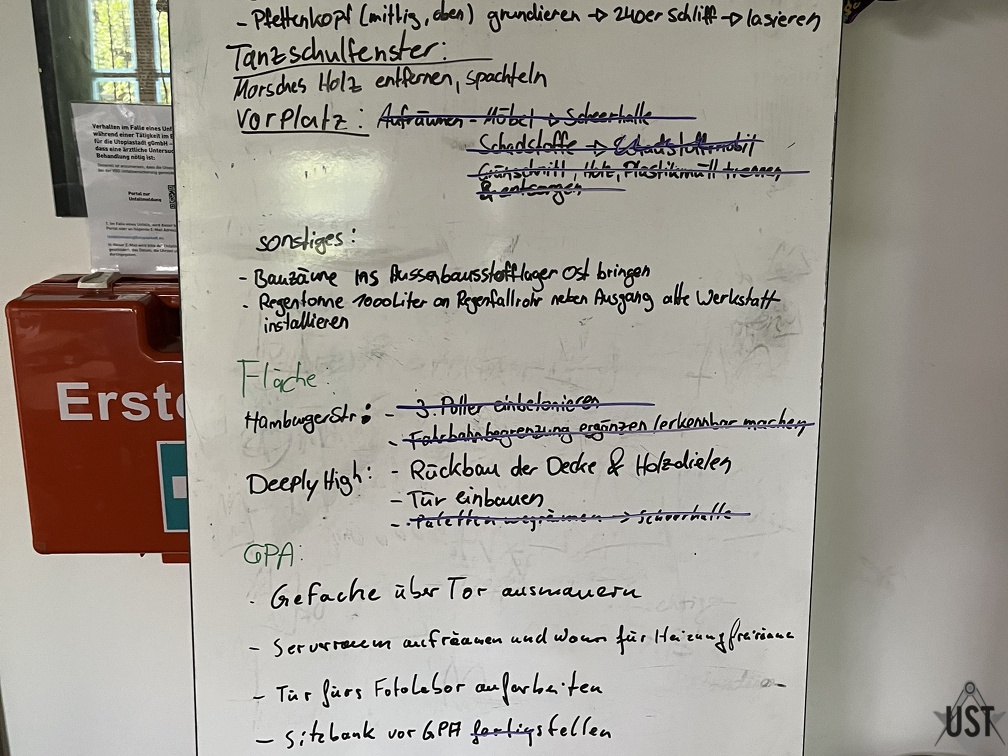 - Pfettenkopf (mittig, oben) grundieren → 240er Schliff → lasieren
Tanzschulfenster:
Morsches Holz entfernen, spachteln
Vorplatz: Aufräumen - Möbel → Scheerhalle
Schadstoffe → Schadstoffmobil
Grünschnitt, Holz, Plastikmüll trennen
& entsorgen
sonstiges:
- Bauzäune ins Aussenbausstofflager Ost bringen
- Regentonne 1000 Liter an Regenfallrohr neben Ausgang alte Werkstatt
installieren
Fläche:
Hamburger Str: - 3. Poller einbetonieren
- Fahrbahnbegrenzung ergänzen/erkennbar machen
Deeply High: - Rückbau der Decke & Holzdielen
- Tür einbauen
- Paletten wegräumen → Scheerhalle
GPA:
- Gefache über Tor ausmauern
- Serverraum aufräumen und für Heizung
- Tür fürs Fotolabor aufarbeiten
- Sitzbank vor GPA fertigstellen
Verhalten im Falle eines
während einer Tätigkeit im
für die Utopiastadt gGmbH -
dass eine ärztliche
Behandlung nötig ist:
Portal zur
Unfallmeldung
Erste
UST